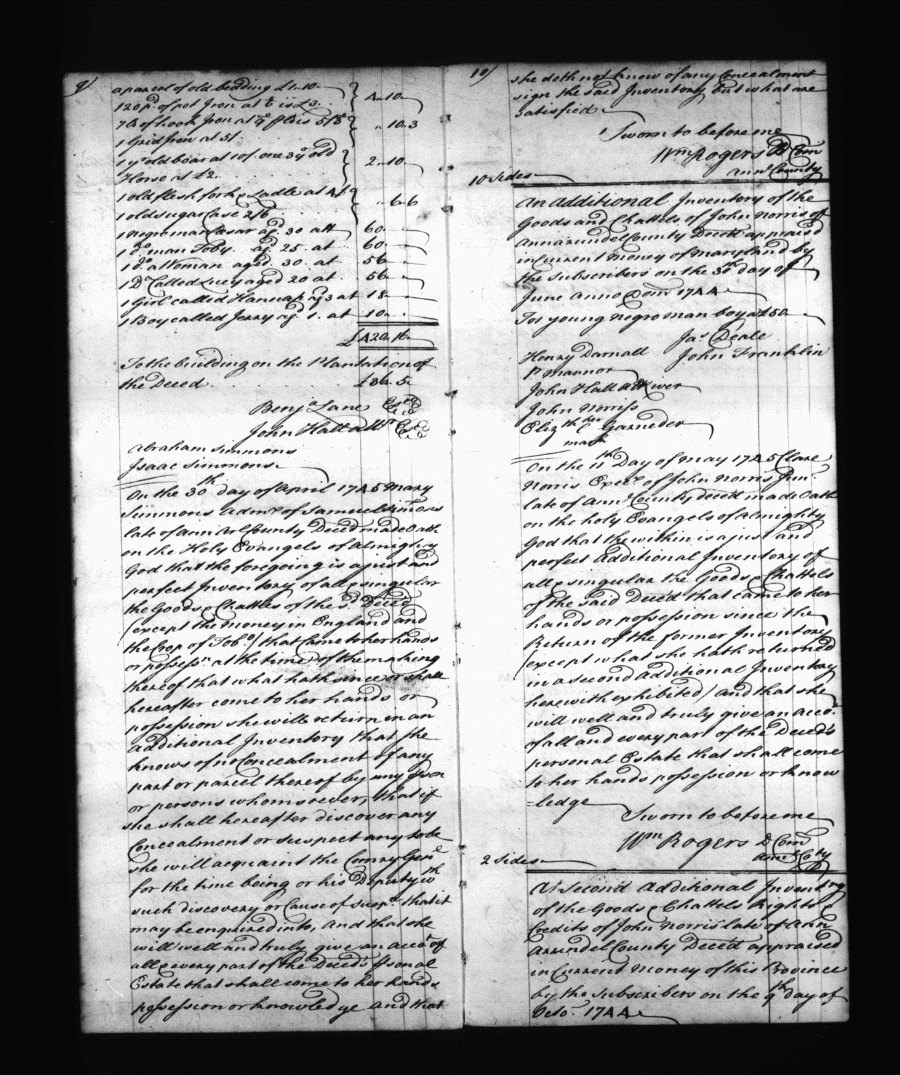 9/
a parcel of old bedding £1..10
120 pd. of pot Iron at 6 is £3
4..10
7 lb of hook Iron at 9d pr lb is 5/3
1 Gridiron at 5/.
..10..3
1 yr old boar at 10/. one 3 yr old
Horse at £2
2..10
1 old flesh fork & Ladle at 4/.
1 old sugar Case 2/6
..6..6
1 negro man Cesar ag. 30 att 60
1 do. man Toby ag 25. at 60
1 do. a Woman aged. 30. at 56
1 Do. Called Lucy aged 20 at 56
1 Girl called Hannah ag 3 at 18
1 Boy called Jerry ag. 1. at 10
£420..16
To the building on the Plantation of
the Deced. £36..5
Benja. Lane
John Hall
Abraham Simmons
Isaac Simmons
On the 30th day of April 1745 Mary
Simmons Admx. of Samuel Simmons
late of Ann Arl County Deced made Oath
on the Holy Evangels of Almighty
God that the foregoing is a just and
perfect Inventory of all & singular
the Goods & Chattles of the sd. Deced
(except the Money in England and
the Crop of Tobo.) that Came to her hands
or possessn. at the time of the making
thereof that what hath since or shall
hereafter come to her hands or
possession she will return in an
additional Inventory that she
knows of no Concealment of any
part or parcel thereof by any pson
or persons whomsoever, that if
she shall hereafter discover any
Concealment or suspect any to be
she will acquaint the Comry Genl
for the time being or his Deputy wth
such discovery or Cause of suspn. that it
may be enquired into, And that she
will well and truly give an acct. of
all & every part of the Deceds psonal
Estate that shall come to her hands
possession or knowledge and that
10/
she doth not know of any Concealment
sign the said Inventory but what are
satisfied
Sworn to before me
Wm. Rogers D Com
Ann County
10 Sides
An additional Inventory of the
Goods and Chattels of John Norris of
Annarundel County Deced appraised
in Current money of Maryland by
the Subscribers on the 30th day of
June Anno Dom 1744
To a young negro man boy at 50
Jas. Deale
John Franklin
Henry Darnall
Pr mannor
John Hall
John Norriss
Elizth her Garneder
mark
On the 11th Day of May 1745 Clare
Norris Execx. of John Norris Junr
late of Ann County deced made Oath
on the holy Evangels of Almighty
God that the within is a just and
perfect Additional Inventory of
all & singular the Goods & Chattels
of the said Deced that came to her
hands or possession since the
Return of the former Inventory
(except what she hath returned
in a second Additional Inventory
herewith exhibited) and that she
will well and truly give an acco.
of all and every part of the Deceds
personal Estate that shall come
to her hands possession or know
=ledge
Sworn to before me
Wm Rogers D Com
2 Sides
A Second Additional Inventory
of the Goods & Chattels Rights &
Credits of John Norris late of Ann
Arundel County Deced appraised
in Current Money of this Province
by the Subscribers on the 9th day of
Octo. 1744